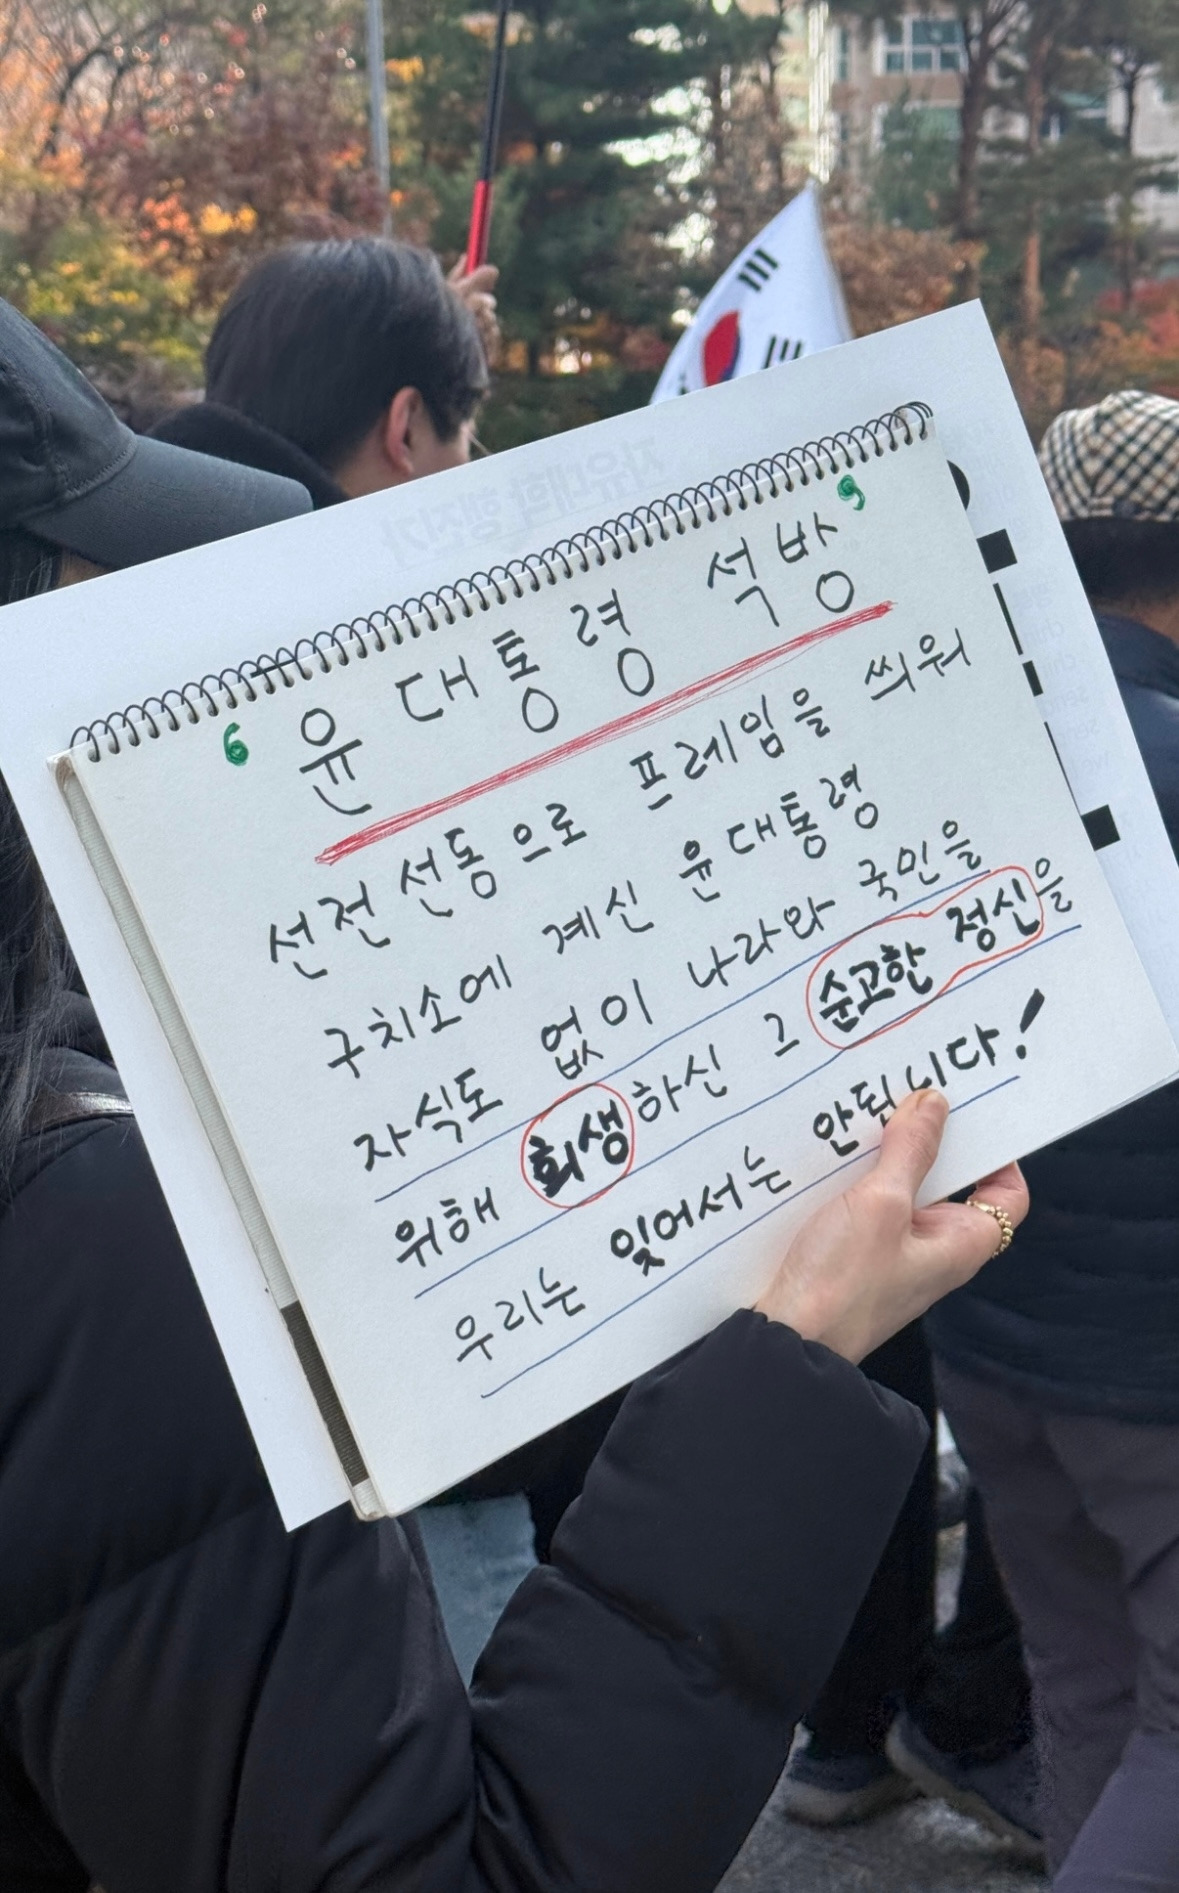 자유대학 행진가
‘윤 대통령 석방’
선전 선동으로 프레임을 씌워
구치소에 계신 윤대통령
자식도 없이 나라와 국민을
위해 희생하신 그 순고한 정신을
우리는 잊어서는 안됩니다!